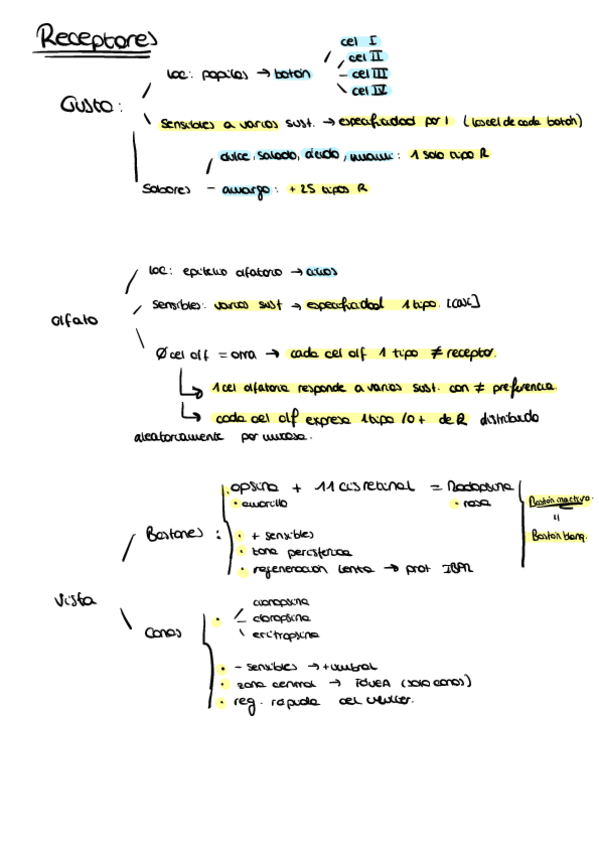 Receptores
cel I
cel II
loc: papilas → botón
cel III
cel IV
Gusto:
sensibles a varios sust. → especificidad por 1 (las cel de cada botón)
dulce, salado, ácido, umami: 1 solo tipo R
Sabores - amargo: + 25 tipos R
loc: epitelio olfatorio → cilios
sensibles: varios sust → especificidad 1 tipo.
olfato
Ø cel olf = otra → cada cel olf 1 tipo ≠ receptor.
1 cel olfatoria responde a varios sust. con ≠ preferencia
cada cel olf expresa 1 tipo /o + de R distribuido
aleatoriamente por mucosa.
opsina + 11 cis retinal = Rodopsina
• amarillo • rosa
Bastón inactivo.
=
Bastón blanq.
Bastones:
• + sensibles
• zona periférica
• regeneración lenta → prot IBRR
Vista
cianopsina
• cloropsina
eritropsina
Conos
• - sensibles → + umbral
• zona central → FOVEA (solo conos)
• reg. rápida cel Müller.